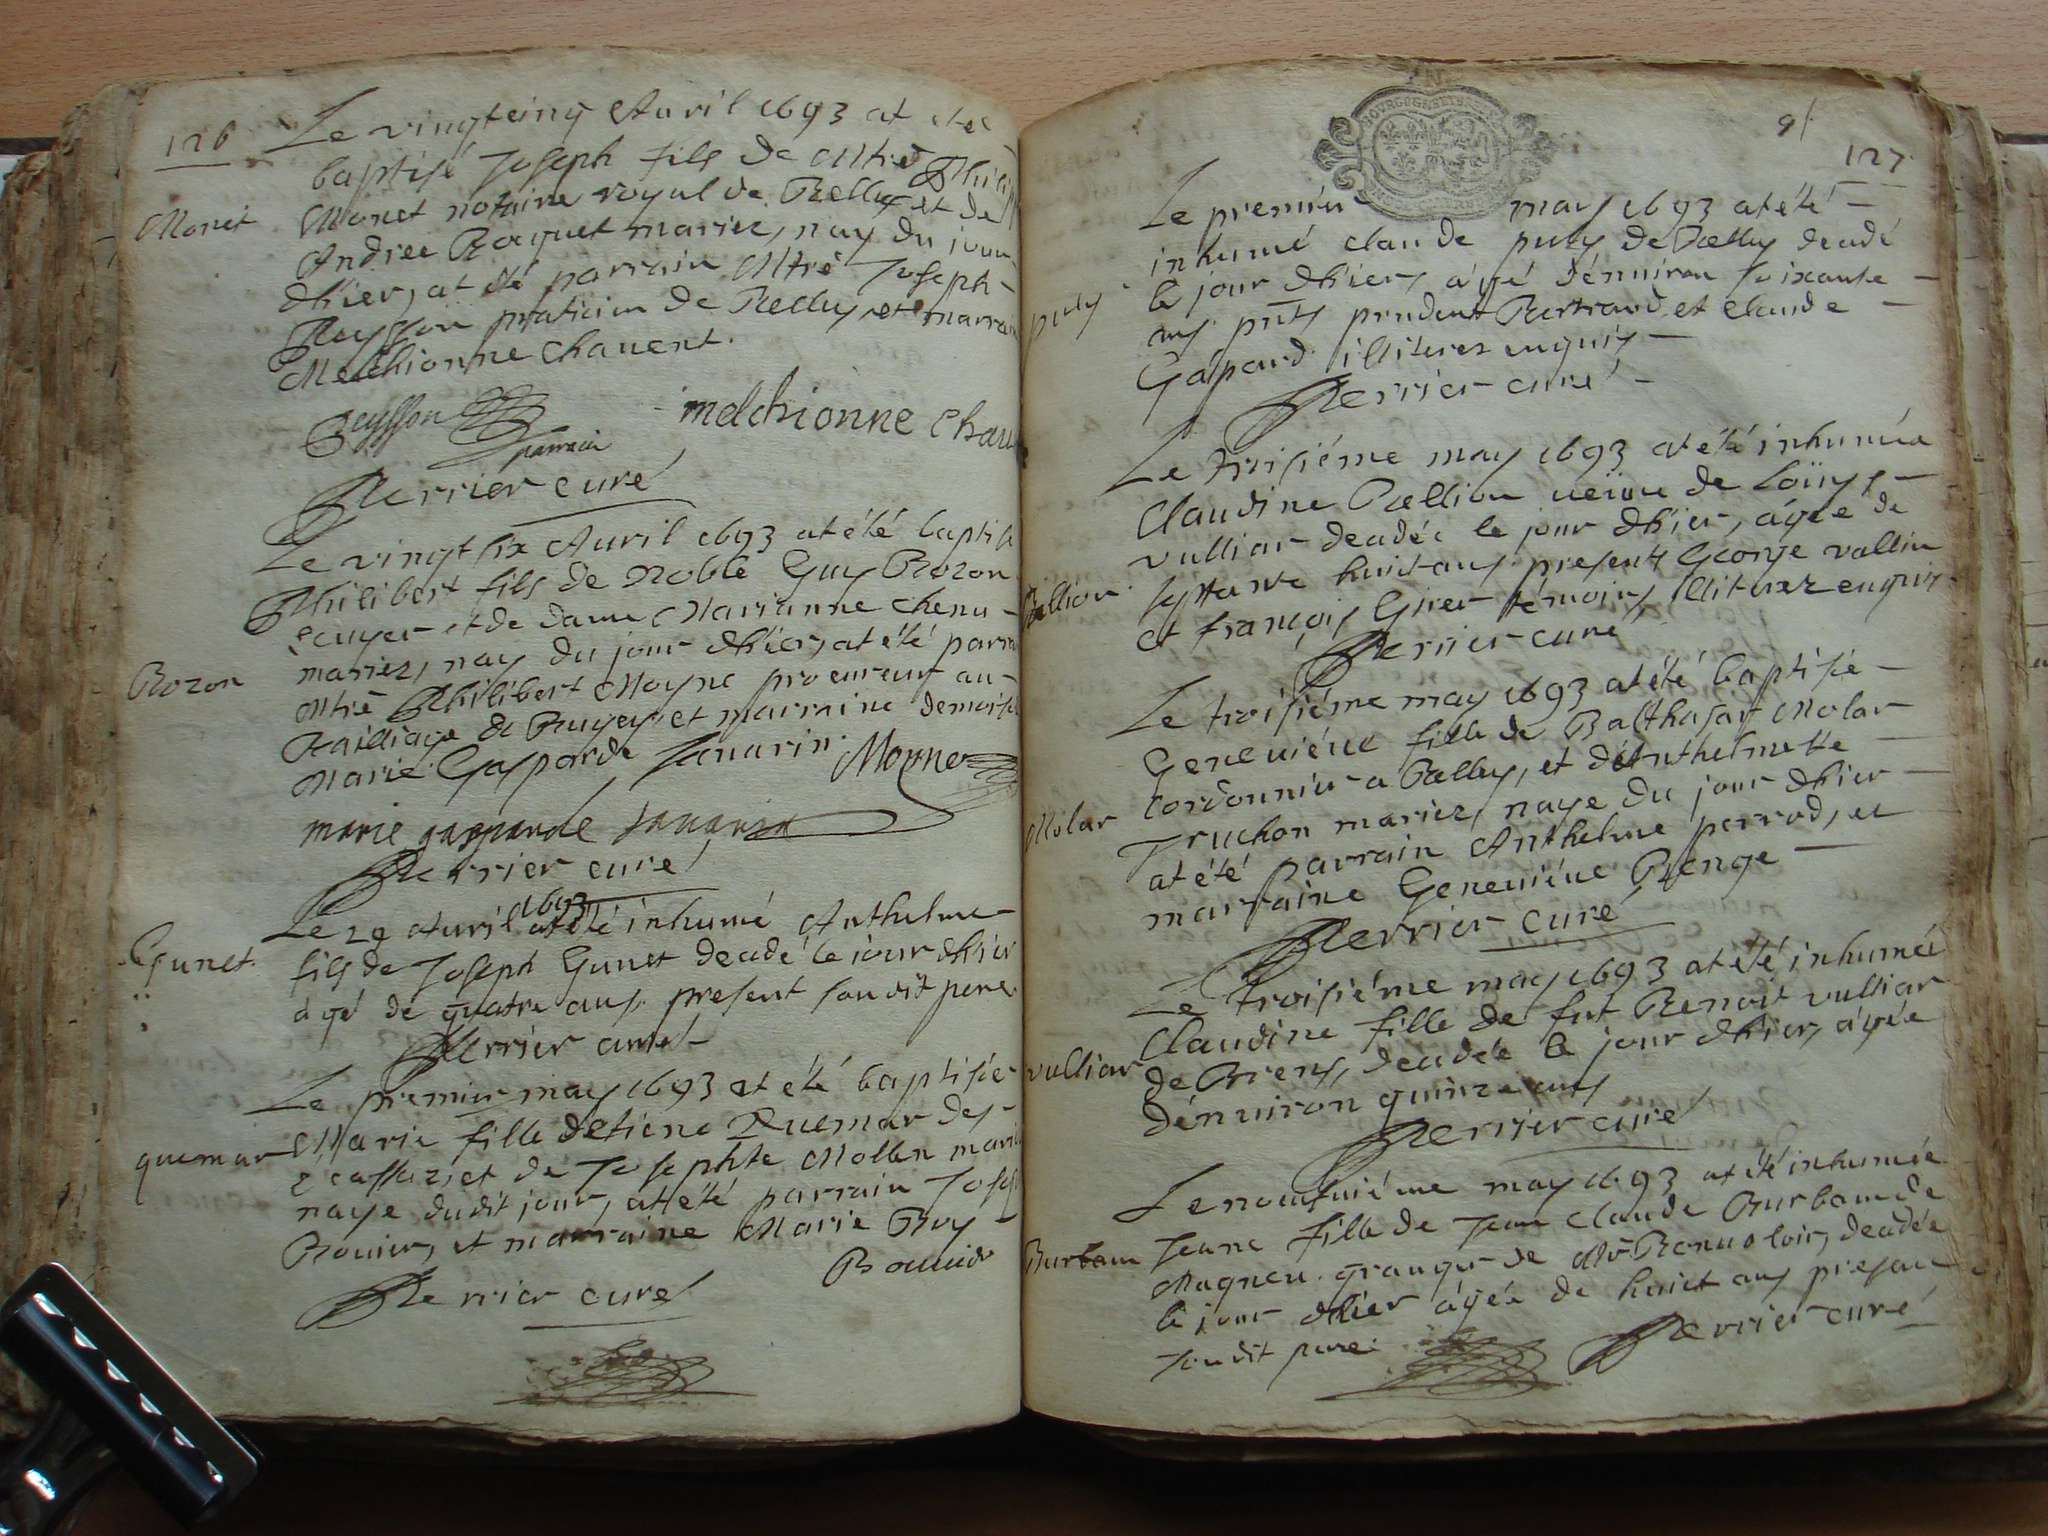 126
Le vingtcinq Auril 1693 at etée
baptisé Joseph fils de Mtre
Monet
Monet notaire royal de Belley et de
Andree Roquet mariez, nay du jour
d'hier, at été parrain Mtre Joseph
Peysson praticien de Belley, et marrain
Melchionne Chauent.
Peysson
parrain
melchionne Chau
Perrier curé
Le vingt six Auril 1693 at été baptisé
Philibert fils de Noble Guy Bozon
ecuyer et de dame Marianne Chenu
Bozon
mariez, nay du jour d'hier, at été parra
Mtre Philibert Moyne procureur au
Bailliage de Bugey et marraine demois
Marie Gasparde Januarin.
Moyne
marie gasparde Januarin
Perrier curé
1693
Le 29 Auril at été inhumé Anthelme
Gunet
fils de Joseph Gunet decedé le jour d'hier
agé de quatre ans, present son dit pere
Perrier curé
Le premier may 1693 at été baptisée
Marie fille detiene Quemar des
quemar
ecassaz, et de Josephte Mollin marié
naye dudit jour, at été parrain Jose
Bouier, et marraine Marie Buy
Bouuier
Perrier curé
9
127
Le premier may 1693 at été
inhumé claude puys de Belley decedé
puys
le jour d'hiery ágé dénuiron soixante
ans pnts prudent Bertrand et Claude
Gaspard illiterez enquis
Perrier curé
Le troisiéme may 1693 at été inhumée
Claudine Bellion ueüue de Loüys
vulliar decedée le jour d'hier, ágée de
Bellion
septante huict ans, presents George vallin
et françois Grier témoins illiterez enquis
Perrier curé
Le troisiéme may 1693 at été baptisée
Geneuiéue fille de Balthasar Molar
cordonnier a Belley, et d'Anthelmette
Molar
Truchon mariez, naye du jour d'hier
at été parrain Anthelme perrod, et
marraine Geneuiéue Benge
Perrier curé
Le troisiéme may 1693 at été inhumée
Claudine fille de fut Benoit vulliar
vulliar
de Brens, decedée le jour d'hier, ágée
dénuiron quinze ans
Perrier curé
Le neufuiéme may 1693 at été inhumée
Jeane fille de Jean Claude Burbam de
Burbam
Magneu granger de Mr loir, decedée
le jour d'hier ágée de huict ans presant
son dit pere.
Perrier curé